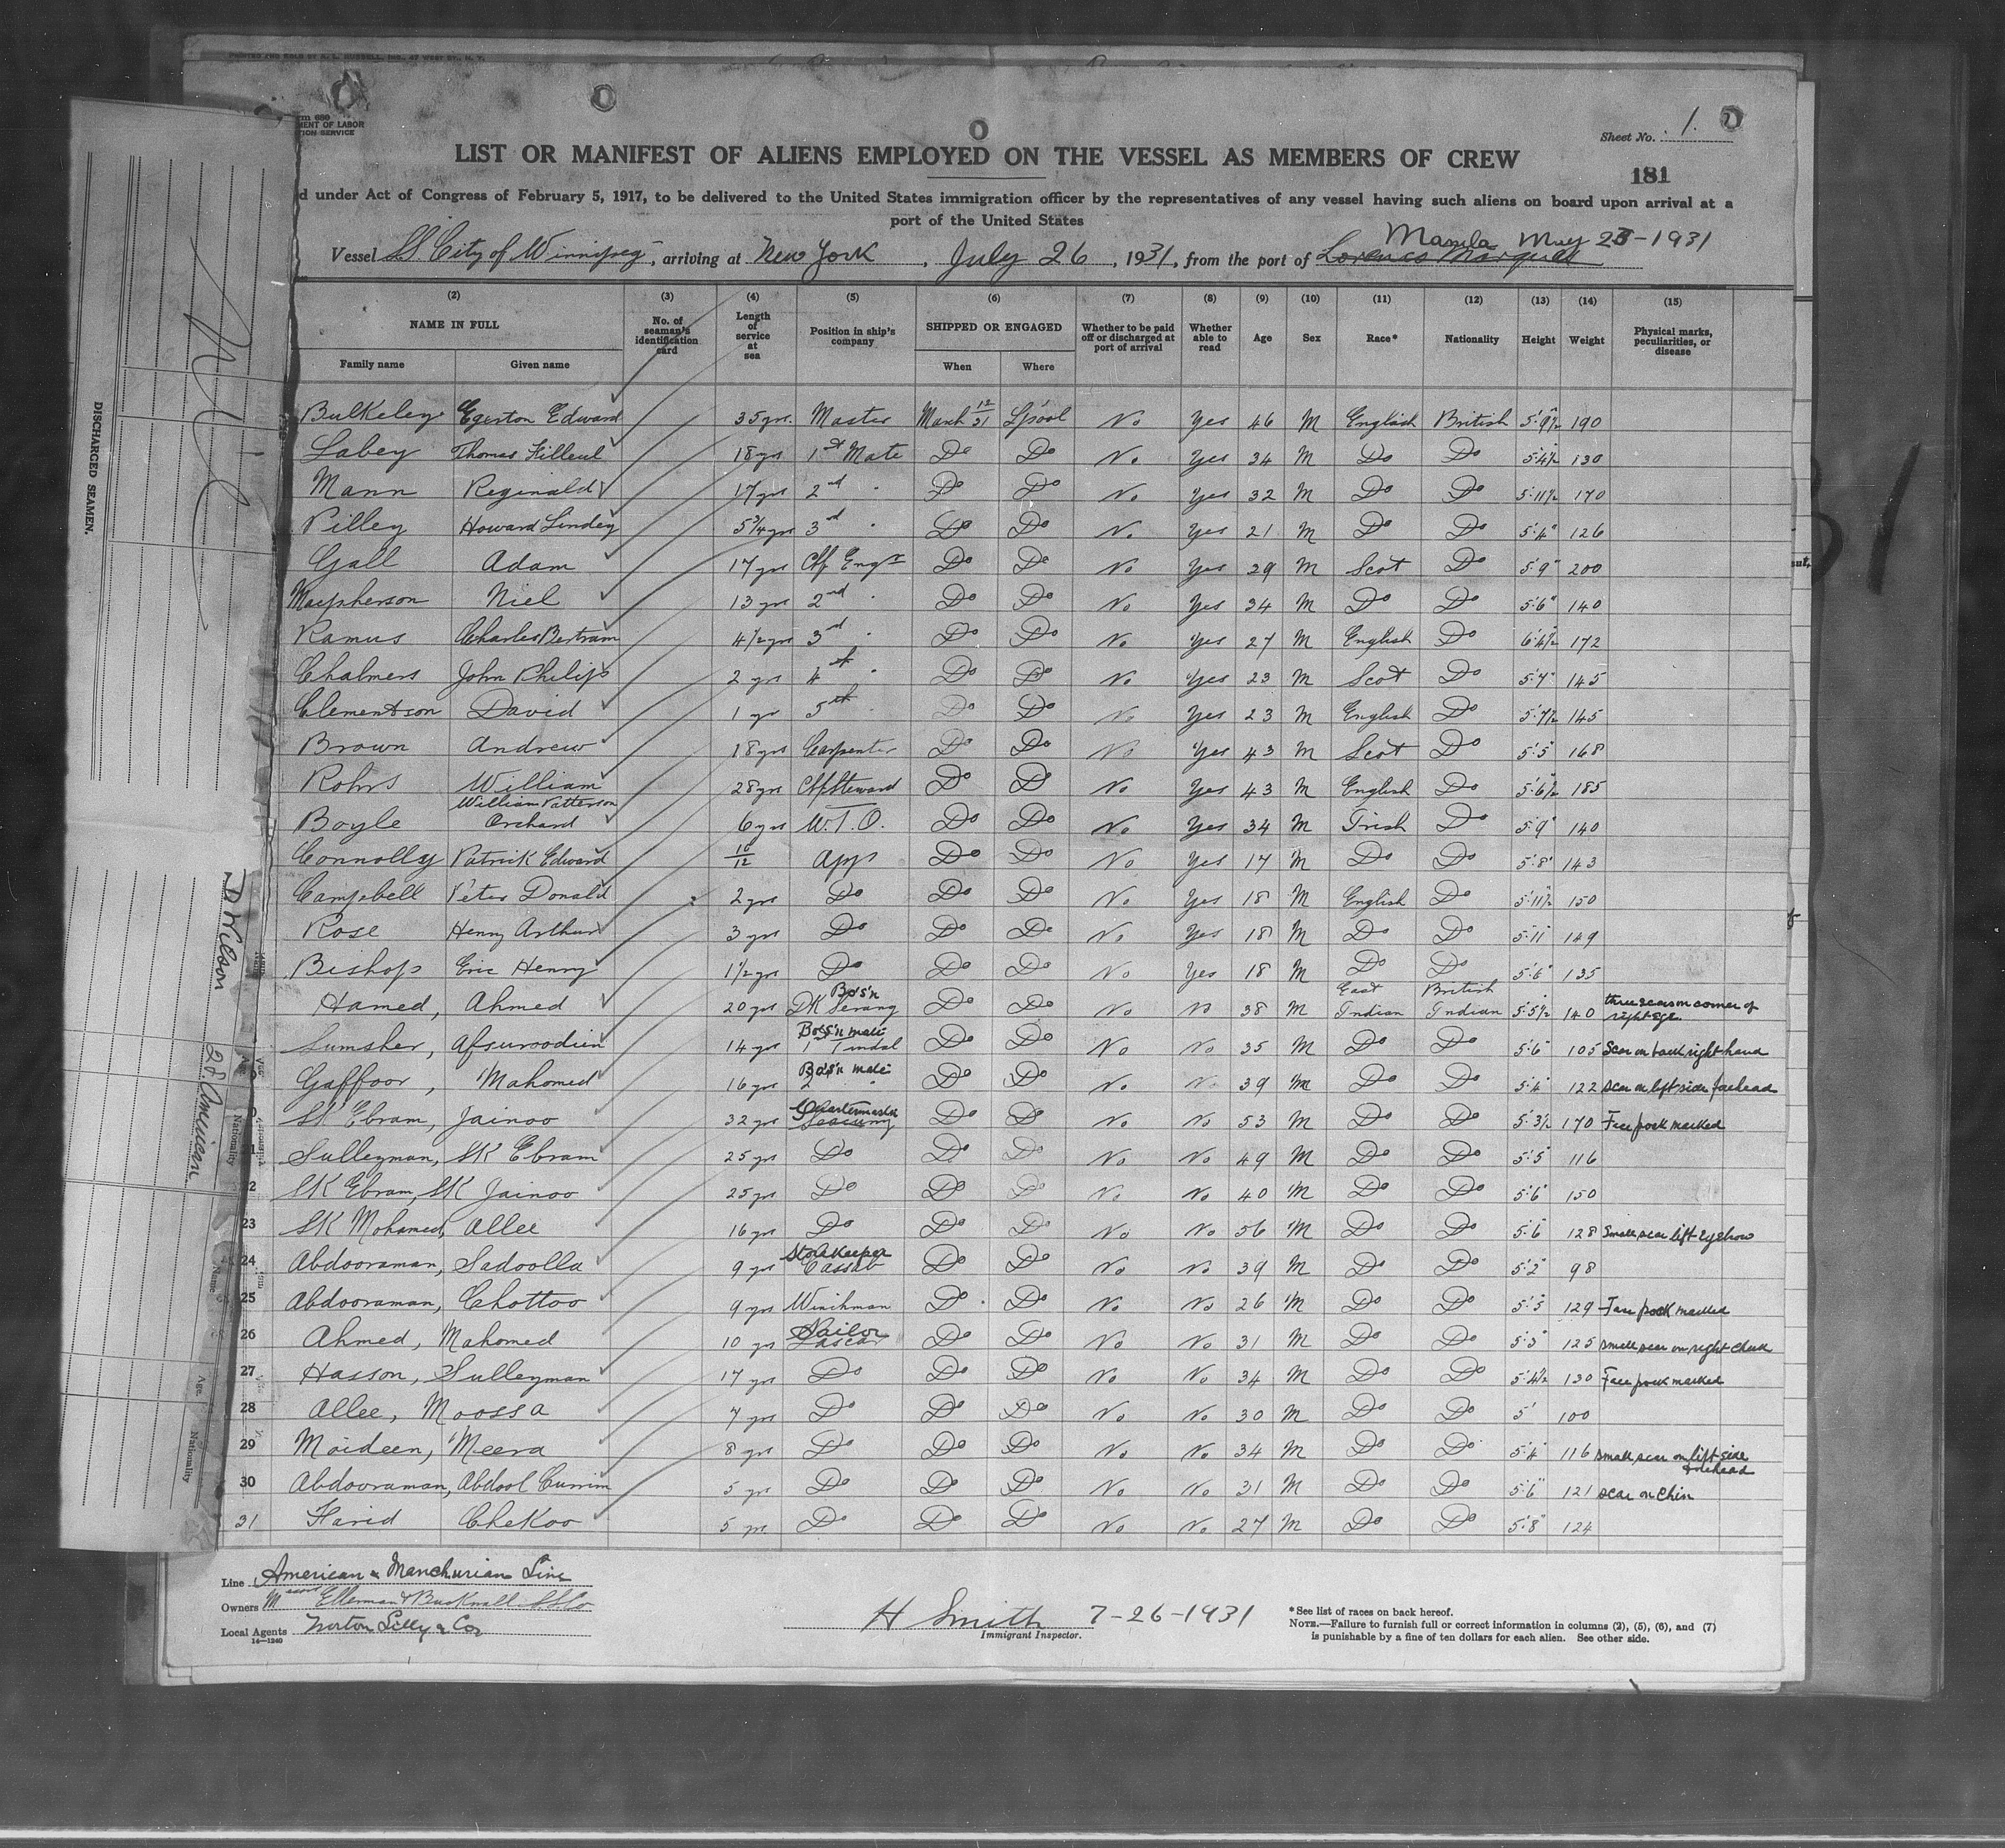 PRINTED FOR SALE BY A. L. RUSSELL, INC., 47 WEST ST., N. Y.
rm 680
MENT OF LABOR
TION SERVICE
Sheet No. 1.
LIST OR MANIFEST OF ALIENS EMPLOYED ON THE VESSEL AS MEMBERS OF CREW
181
d under Act of Congress of February 5, 1917, to be delivered to the United States immigration officer by the representatives of any vessel having such aliens on board upon arrival at a
port of the United States
Manila May 23-1931
Vessel SS. City of Winnipeg, arriving at New York, July 26, 1931, from the port of Lorenco Marques
(2) (3) (4) (5) (6) (7) (8) (9) (10) (11) (12) (13) (14) (15)
NAME IN FULL No. of seaman's identification card Length of service at sea Position in ship's company SHIPPED OR ENGAGED Whether to be paid off or discharged at port of arrival Whether able to read Age Sex Race* Nationality Height Weight Physical marks, peculiarities, or disease
Family name Given name When Where
Bulkeley Egerton Edward 35 yrs. Master March 12/31 L'pool No Yes 46 M English British 5'9½" 190
Labey Thomas Filleul 18 yrs 1st Mate Do Do No Yes 34 M Do Do 5'4½ 130
Mann Reginald 17 yrs 2nd " Do Do No Yes 32 M Do Do 5'11½ 170
Pilley Howard Lindey 5¾ yrs 3rd " Do Do No Yes 21 M Do Do 5'4" 126
Gall Adam 17 yrs Chf Engr Do Do No Yes 39 M Scot Do 5'9" 200
Macpherson Niel 13 yrs 2nd " Do Do No Yes 34 M Do Do 5'6" 140
Ramus Charles Bertram 4½ yrs 3rd " Do Do No Yes 27 M English Do 6'4½ 172
Chalmers John Philip 2 yrs 4th " Do Do No Yes 23 M Scot Do 5'7" 145
Clementson David 1 yr 5th " Do Do No Yes 23 M English Do 5'7½ 145
Brown Andrew 18 yrs Carpenter Do Do No Yes 43 M Scot Do 5'5" 168
Rohrs William 28 yrs Chf Steward Do Do No Yes 43 M English Do 5'6½ 185
Boyle William Patterson Orchard 6 yrs W.T.O. Do Do No Yes 34 M Irish Do 5'9" 140
Connolly Patrick Edward 10/12 App Do Do No Yes 17 M Do Do 5'8" 143
Campbell Peter Donald 2 yrs Do Do Do No Yes 18 M English Do 5'11½ 150
Rose Henry Arthur 3 yrs Do Do Do No Yes 18 M Do Do 5'11" 149
Bishop Eric Henry 1½ yrs Do Do Do No Yes 18 M Do Do 5'6" 135
Hamed, Ahmed 20 yrs Bos'n DK Serang Do Do No No 38 M East Indian British Indian 5'5½ 140 three scars on corner of right eye
Sumsher, Afsuroodin 14 yrs Bos'n mate 1 Tindal Do Do No No 35 M Do Do 5'6" 105 Scar on back right hand
Gaffoor, Mahomed 16 yrs Bos'n mate 2 " Do Do No No 39 M Do Do 5'4" 122 scar on left side forehead
SK Ebram, Jainoo 32 yrs Quartermaster Do Do No No 53 M Do Do 5'3½ 170 Face pock marked
21 Sulleyman, SK Ebram 25 yrs Do Do Do No No 49 M Do Do 5'5" 116
22 SK Ebram, SK Jainoo 25 yrs Do Do Do No No 40 M Do Do 5'6" 150
23 SK Mohamed, Allee 16 yrs Do Do Do No No 56 M Do Do 5'6" 128 Small scar left eyebrow
24 Abdooraman, Sadoolla 9 yrs Storekeeper Cassab Do Do No No 39 M Do Do 5'2" 98
25 Abdooraman, Chottoo 9 yrs Winchman Do Do No No 26 M Do Do 5'5" 129 Face pock marked
26 Ahmed, Mahomed 10 yrs Sailor Lascar Do Do No No 31 M Do Do 5'3" 125 small scar on right cheek
27 Hasson, Sulleyman 17 yrs Do Do Do No No 34 M Do Do 5'4½ 130 Face pock marked
28 Allee, Moossa 7 yrs Do Do Do No No 30 M Do Do 5' 100
29 Moideen, Meera 8 yrs Do Do Do No No 34 M Do Do 5'4" 116 small scar on left side forehead
30 Abdooraman, Abdool Currim 5 yrs Do Do Do No No 31 M Do Do 5'6" 121 scar on chin
31 Farid Chekoo 5 yrs Do Do Do No No 27 M Do Do 5'8" 124
Line American & Manchurian Line
Owners Messrs Ellerman & Bucknall S.S.Co
Local Agents Norton Lilly & Co
14—1240
H Smith 7-26-1931
Immigrant Inspector.
*See list of races on back hereof.
NOTE.—Failure to furnish full or correct information in columns (2), (5), (6), and (7)
is punishable by a fine of ten dollars for each alien. See other side.
DISCHARGED SEAMEN.
Nil
D Wilson
Age
Nationality
Name
Age
Nationality